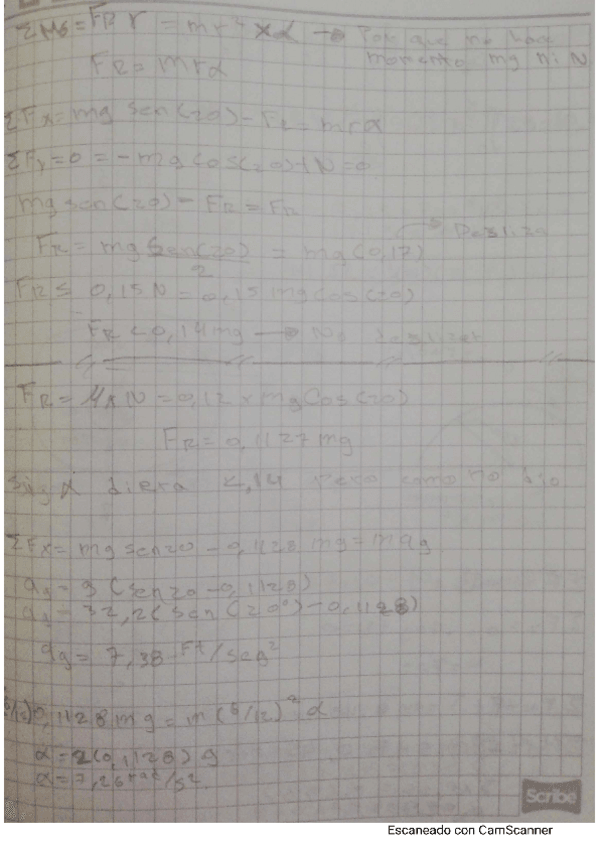 ΣMG = FR r = mr² × α → Porque no hace
momento mg ni N
FR = mrα
ΣFx = mg sen(20) - FR = mrα
ΣFy = 0 = -mg Cos(20) + N = 0
mg sen(20) - FR = FR
FR = mg Sen(20)/2 = mg(0,17) → Desliza
FR ≤ 0,15 N = 0,15 mg Cos(20)
FR < 0,14 mg → No
FR = MK N = 0,12 × mg Cos(20)
FR = 0,1127 mg
α diera <,14 pero como no dio
ΣFx = mg sen 20 - 0,1128 mg = m ag
ag = g (sen 20 - 0,1128)
ag = 32,2 (sen(20°) - 0,1128)
ag = 7,38 Ft/seg²
(6/12) 0,1128 mg = m (6/12)² α
α = 2(0,1128) g
α = 7,26 rad/s²
Scribe
Escaneado con CamScanner